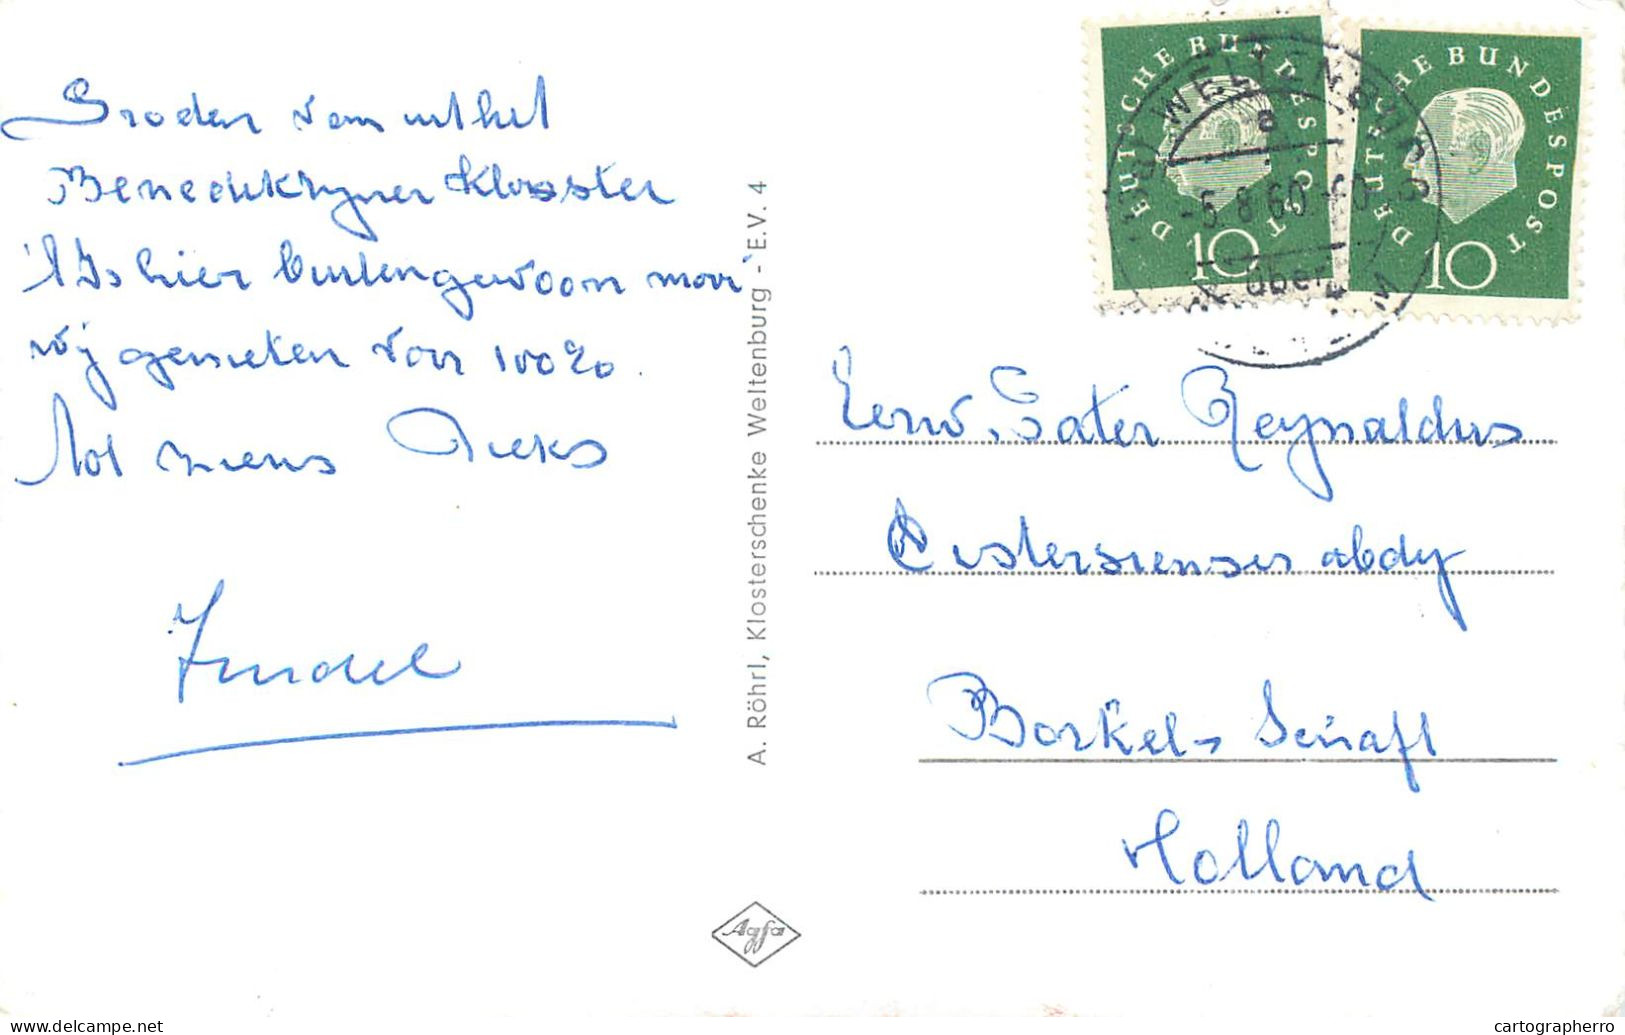 vanuit het
Benedictijner Klooster
't Is hier buitengewoon mooi
wij genieten voor 100%.
Tot ziens
A. Röhrl, Klosterschenke Weltenburg - E.V. 4
Agfa
DEUTSCHE BUNDESPOST
10
DEUTSCHE BUNDESPOST
10
WELTENBURG
a
-5.8.60
über
Eerw. Pater Reynaldus
Cistersienser abdy
Borkel-Schaft
Holland
delcampe.net
cartographerro